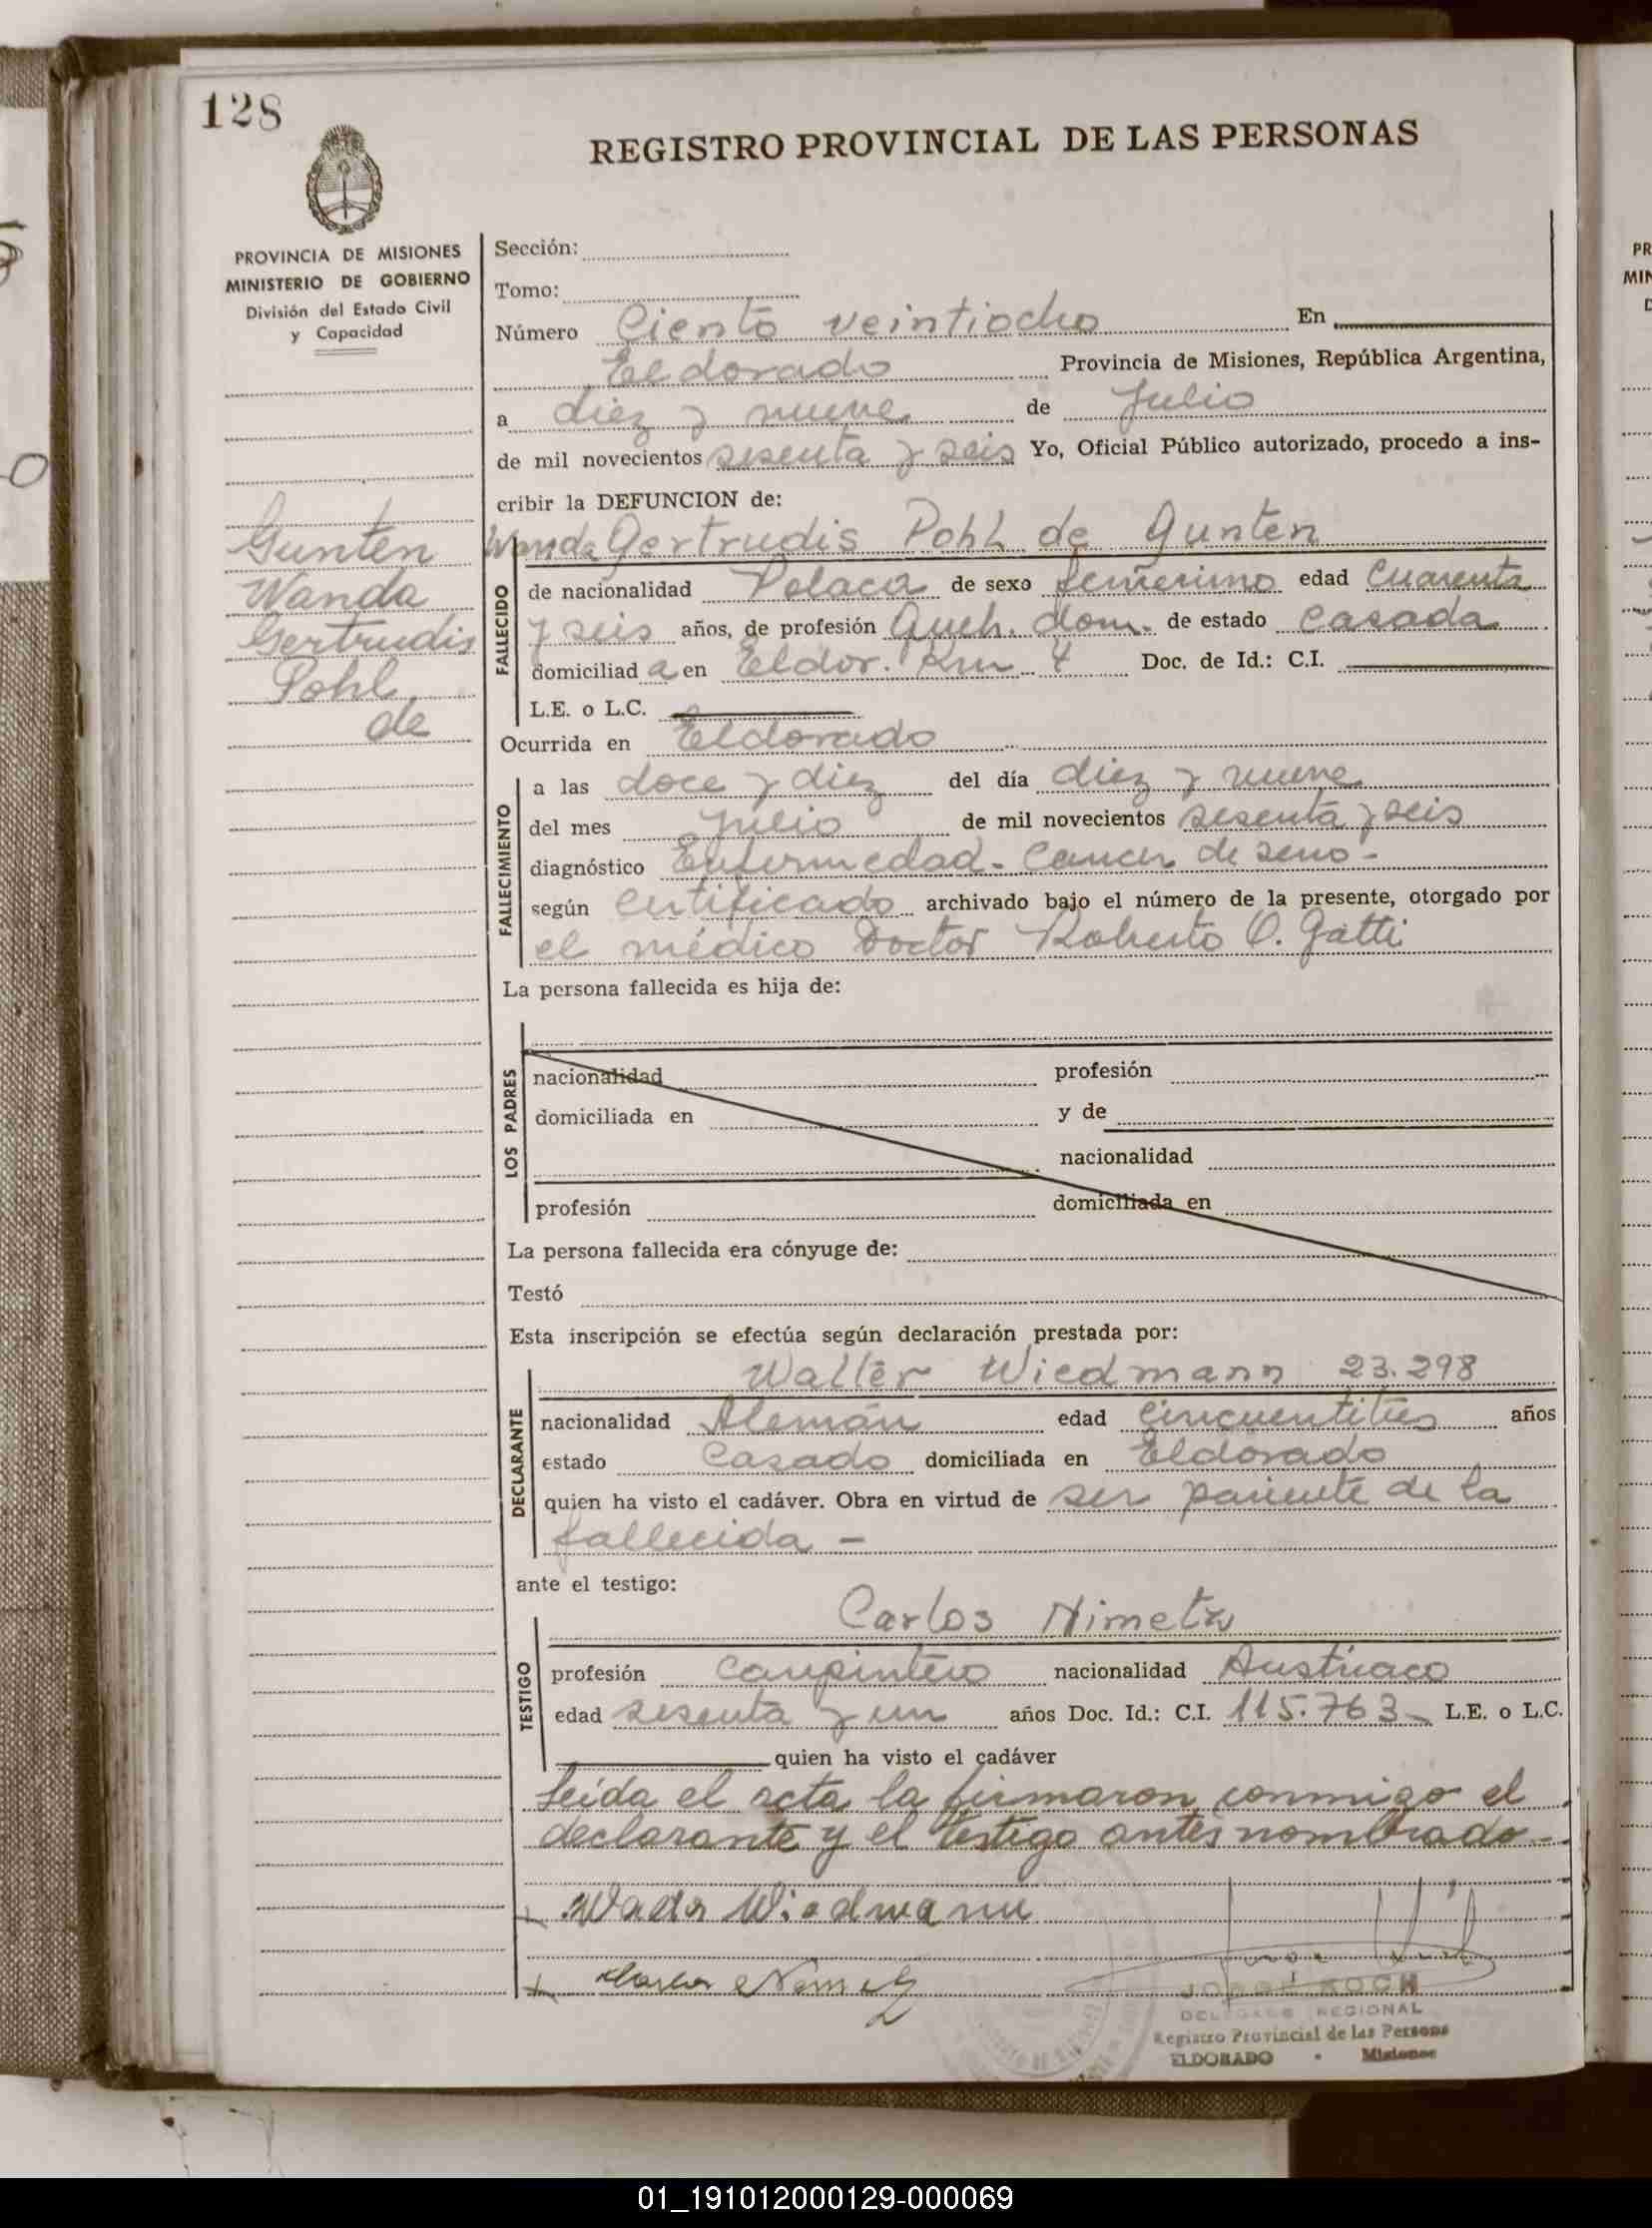 128
REGISTRO PROVINCIAL DE LAS PERSONAS
PROVINCIA DE MISIONES
MINISTERIO DE GOBIERNO
División del Estado Civil
y Capacidad
Gunten
Wanda
Gertrudis
Pohl
de
Sección:
Tomo:
Número Ciento veintiocho En
Eldorado Provincia de Misiones, República Argentina,
a diez y nueve de Julio
de mil novecientos sesenta y seis Yo, Oficial Público autorizado, procedo a ins-
cribir la DEFUNCION de:
Wanda Gertrudis Pohl de Gunten
FALLECIDO
de nacionalidad Polaca de sexo femenino edad cuarenta
y seis años, de profesión Queh. dom. de estado casada
domiciliad a en Eldor. Km 4 Doc. de Id.: C.I.
L.E. o L.C.
Ocurrida en Eldorado
FALLECIMIENTO
a las doce y diez del día diez y nueve
del mes Julio de mil novecientos sesenta y seis
diagnóstico Enfermedad - Cancer de seno -
según certificado archivado bajo el número de la presente, otorgado por
el médico Doctor Roberto O. Gatti
La persona fallecida es hija de:
LOS PADRES
nacionalidad profesión
domiciliada en y de
nacionalidad
profesión domiciliada en
La persona fallecida era cónyuge de:
Testó
Esta inscripción se efectúa según declaración prestada por:
Walter Wiedmann 23.298
DECLARANTE
nacionalidad Alemán edad cincuentitres años
estado Casado domiciliada en Eldorado
quien ha visto el cadáver. Obra en virtud de ser pariente de la
fallecida -
ante el testigo:
Carlos Nimetz
TESTIGO
profesión carpintero nacionalidad Austriaco
edad sesenta y un años Doc. Id.: C.I. 115.763 L.E. o L.C.
quien ha visto el cadáver
Leída el acta la firmaron conmigo el
declarante y el testigo antes nombrado -
Wiedmann
JORGE KOCH
DELEGADO REGIONAL
Registro Provincial de las Persons
ELDORADO - Misiones
PR
MIN
D
01_191012000129-000069